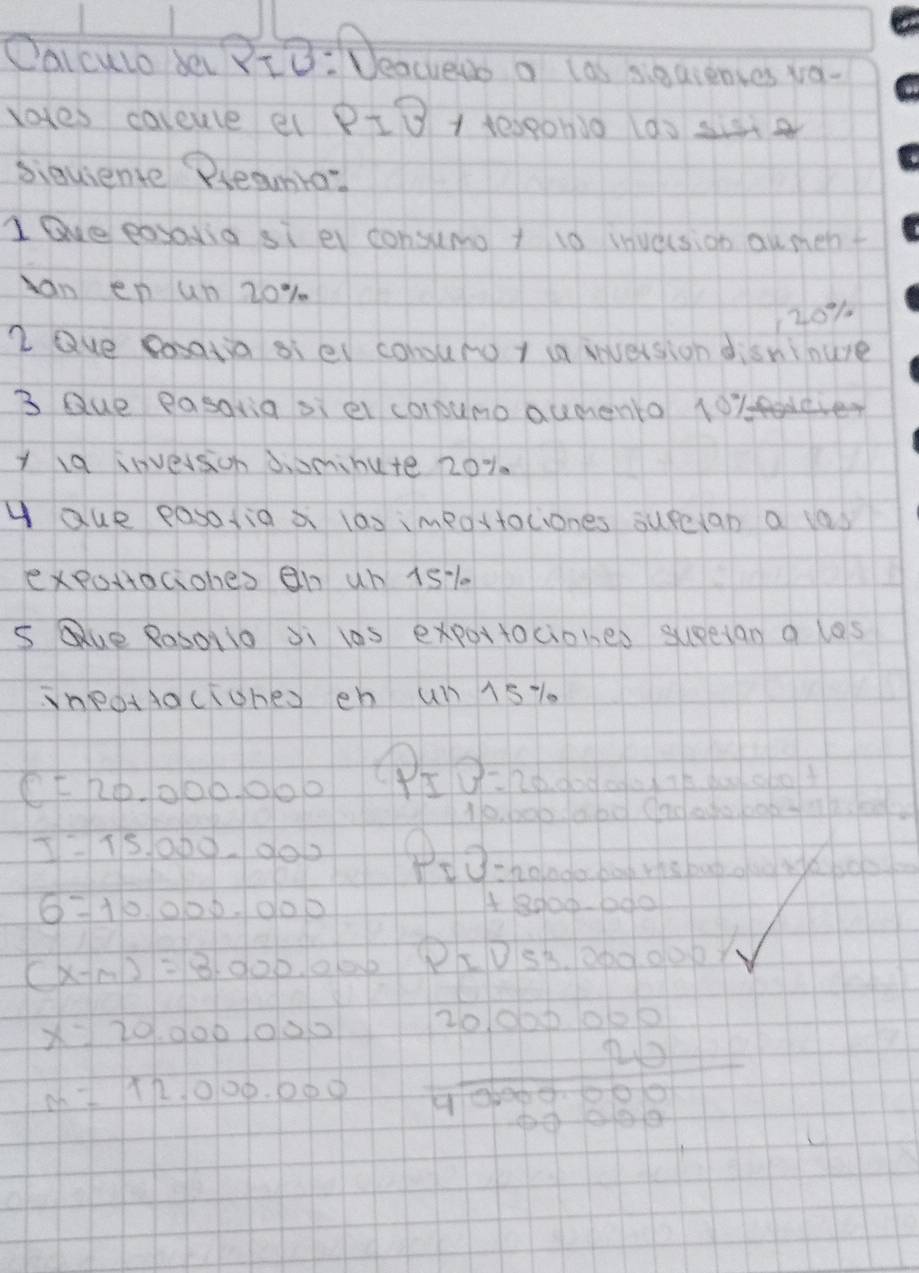 Calculo del PIB: Deacuerdo a las siguientes va-
lores calcule el PIB y responda las
siguiente Pregunta:
1 Que pasaria si el consumo y la inversion aumen-
tan en un 20%
20%
2 Que pasaria si el consumo y la inversion disminuye
3 Que pasaria si el consumo aumento 10%
y la inversion disminute 20%
4 que pasaria si las importaciones superan a las
exportaciones en un 15%
5 Que Pasaria si las exportaciones superan a las
importaciones en un 15%
C = 20.000.000 PIB = 20.000.000 +
10.000.000
I = 15.000.000
PIB =
G = 10.000.000 + 8.000.000
(x-m) = 8.000.000 PIB 53.000.000 ✓
x = 20.000.000 20.000.000
20
m = 12.000.000 4 000 000
00 000